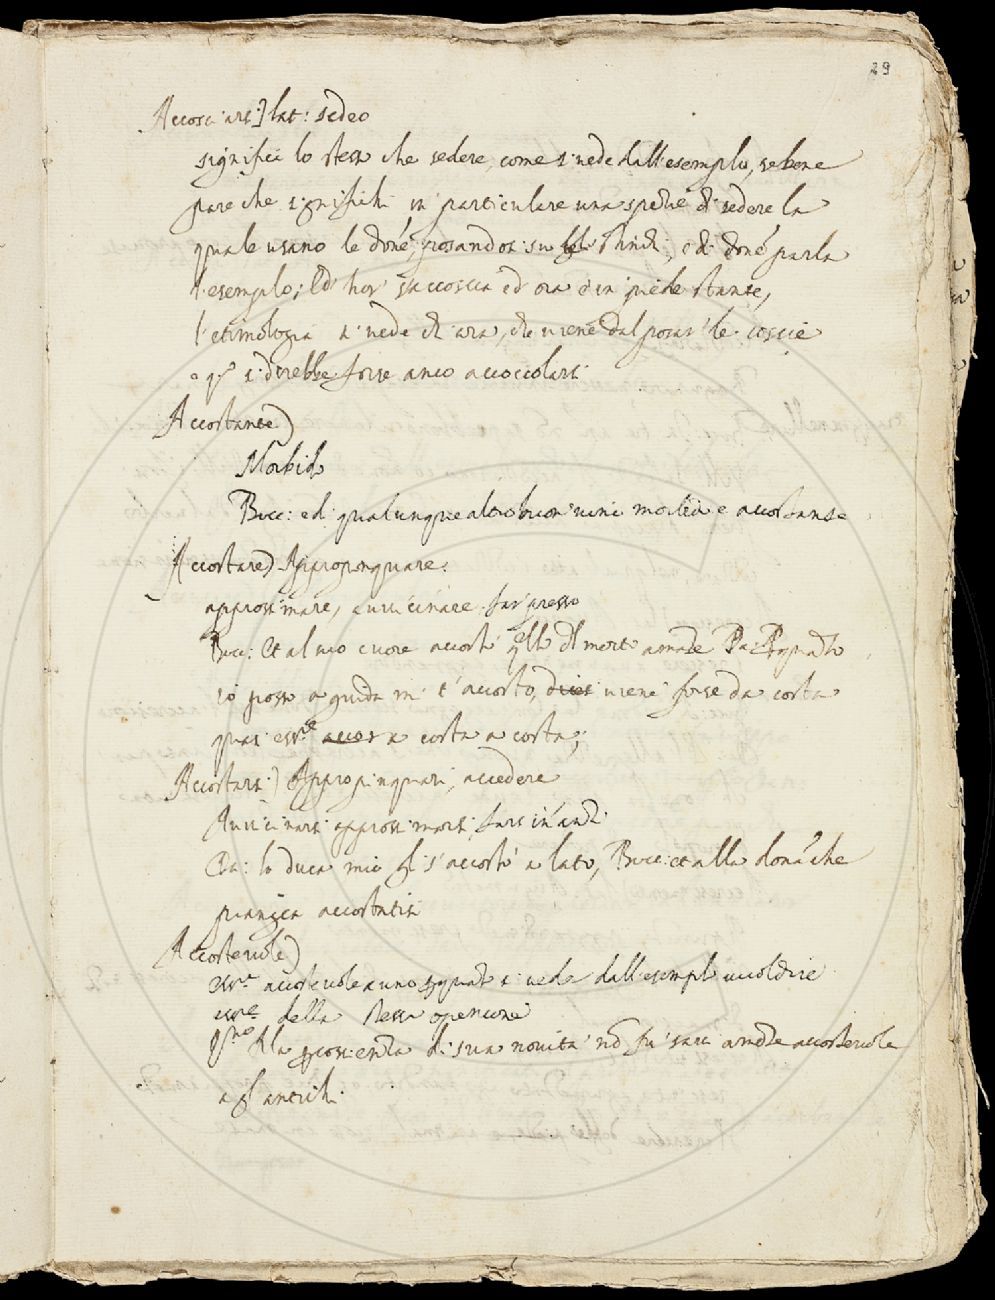 29
Accosciarsi] lat: sedeo
significa lo stesso che sedere, come si vede dall'esemplo, sebene
pare che significhi in particulare una spetie di sedere la
quale usano le doñe, posandosi su
l'esemplo; Ed hor s'accoscia ed ora è in piede stante,
l'etimologia si vede chiara, che viene dal posar le coscie
si direbbe forse anco accoccolarsi
Accostante)
Morbido
Bocc: ed qualunque altro buon vini morbido e accostante
Accostare) Appropinquare:
approssimare, avvicinare far presso
Bocc: Et al mio cuore accostò morto amante
io posso a guida m' t'accosto, viene forse da costa
quasi esser acces a costa a costa;
Accostarsi) Appropinquari, accedere
Avvicinarsi approssimarsi, farsi inãnzi
Da: lo duca mio gli s'accostò a lato, Bocc: et alla doña che
piangea accostatisi
Accostevole)
accostevole a uno si vede dall'esemplo vuol dire
della stessa openione
di sua novità nõ fu sarà accostevole
a gl'antichi